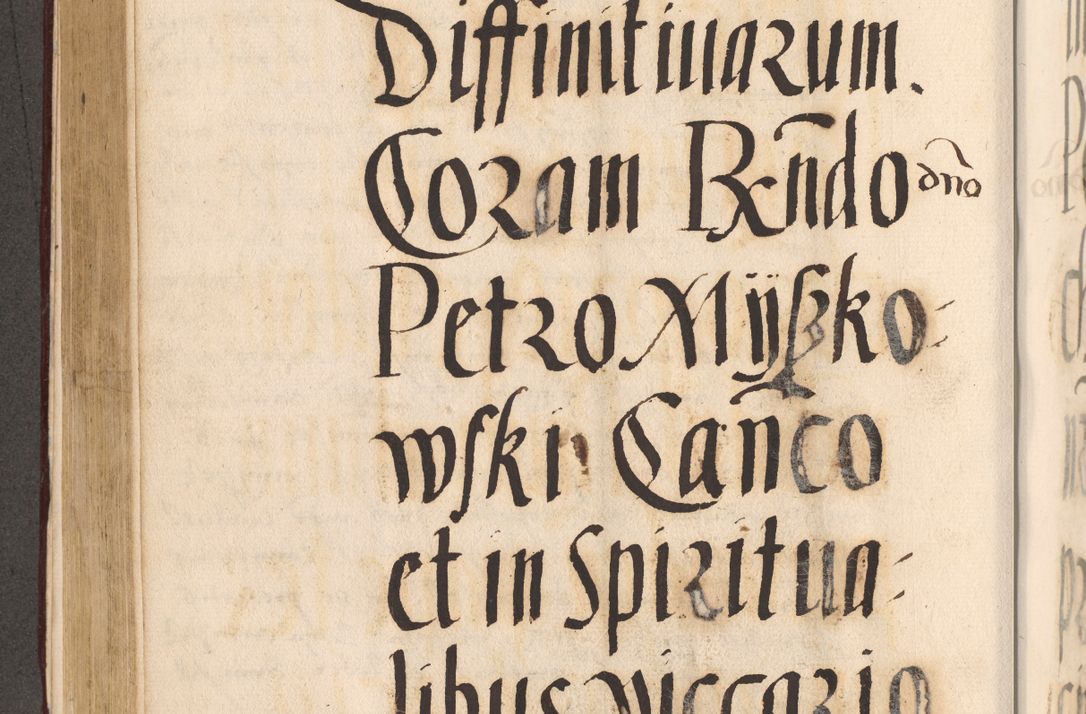 Diffinitiuarum.
Coram Rndo dno
Petro Mÿszko-
wski Canco
et in Spiritua-
libus viccario